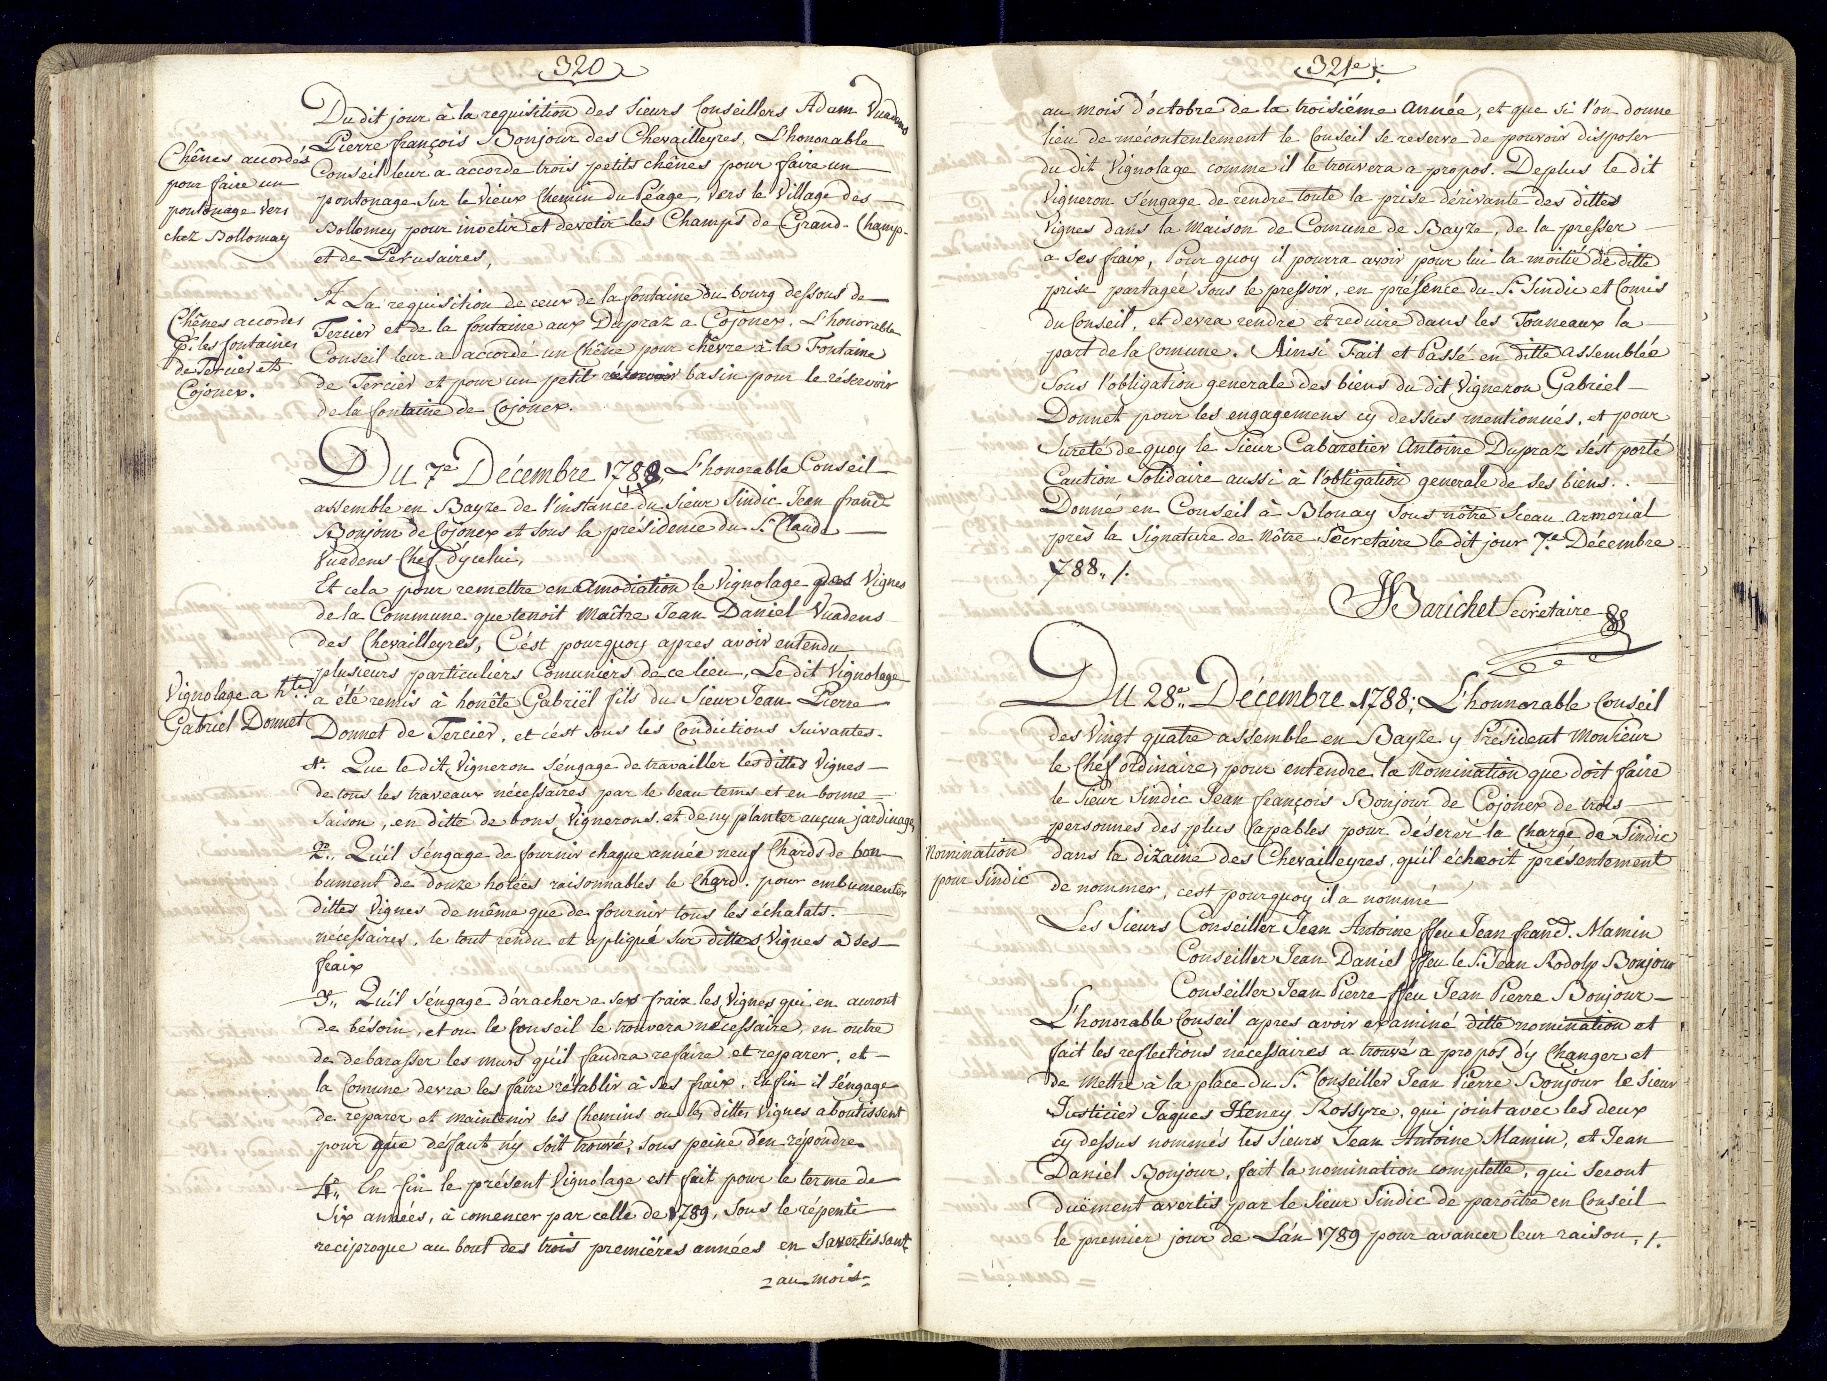 320
Du dit jour à la requisition des Sieurs Conseillers Adam Vuadens
Pierre françois Bonjour des Chevailleyres, L'honorable
Chênes accordés
pour faire un
pontonage vers
chez Bollomay
Conseil leur a accordé trois petits chênes pour faire un
pontonage sur le Vieux Chemin du Péage, vers le Village des
Bollomey pour invetir et devetir les Champs de Grand-Champ
et de Perusaires,
A La requisition de ceux de la fontaine du bourg dessous de
Chênes accordés
pr. les fontaines
de Tercier et
Cojonex.
Tercier et de la fontaine aux Dupraz a Cojonex. L'honorable
Conseil leur a accordé un chêne pour chêvre à la Fontaine
de Tercier et pour un petit réservoir basin pour le réservoir
de la fontaine de Cojonex.
Du 7e Décembre 1788, L'honorable Conseil
assemble en Bayze de l'instance du Sieur Sindic Jean francs
Bonjour de Cojonex et sous la présidence du Sr. Claude
Vuadens Chef d'ycelui,
Et cela pour remettre en Amodiation le Vignolage des Vignes
de la Commune que tenoit Maître Jean Daniel Vuadens
des Chevailleyres, C'ést pourquoy apres avoir entendu
plusieurs particuliers Comuniers de ce lieu, Le dit Vignolage
Vignolage a hte.
Gabriel Donnet
a été remis à honête Gabriël fils du Sieur Jean Pierre
Donnet de Tercier, et c'ést sous les Conditions Suivantes.
1°. Que le dit Vigneron s'éngage de travailler lesdittes Vignes
de tous les traveaux nécessaires par le beau tems et en bonne
Saison, en ditte de bons Vignerons. et de n'y planter auçun jardinage,
2°. Qu'il s'éngage de fournir chaque année neuf Chards de bon
bument de douze hotées raisonnables le Chard. pour embumenter
dittes Vignes de même que de fournir tous les échalats.
nécessaires, le tout rendu et apliqué sur dittes Vignes à ses
fraix
3°. Qu'il s'éngage d'aracher a ses fraix les Vignes qui en auront
de bésoin, et ou le Conseil le trouvera nécessaire, en outre
de debarasser les murs qu'il faudra refaire et reparer, et
la Comune devra les faire rétablir à ses fraix. Enfin il s'éngage
de reparer et maintenir les Chemins ou les dittes Vignes aboutissent
pour que deffaut n'y soit trouvé; sous peine d'en répondre
4°. En fin le présent Vignolage est fait pour le terme de
Six années, à comencer par celle de 1789, Sous le répenti
reciproque au bout des trois premières années en s'avertissant
= au mois =
321e.
au mois d'octobre de la troisiéme année, et que si l'on donne
lieu de mécontentement le Conseil se reserve de pouvoir disposer
du dit Vignolage comme il le trouvera a propos. Deplus le dit
Vigneron s'éngage de rendre toute la prise dérivante des dittes
Vignes dans la Maison de Comune de Bayze, de la presser
a ses fraix, Pour quoy il pourra avoir pour lui la moitié de ditte
prise partagée sous le pressoir, en présence du Sr. Sindic et Comis
du Conseil, et devra rendre et reduire dans les Tonneaux la
part de la Comune. Ainsi Fait et Passé en ditte assemblée
Sous l'obligation generale des biens du dit Vigneron Gabriel
Donnet pour les engagemens cy dessus mentionnés, et pour
Sureté de quoy le Sieur Cabaretier Antoine Dupraz s'ést porté
Caution Solidaire aussi à l'obligation generale de ses biens.
Donné en Conseil à Blonay sous nôtre Sceau armorial
près la Signature de Nôtre Secretaire le dit jour 7e Décembre
788.. /.
JJ Barichet Secretaire
Du 28e. Décembre 1788; L'honnorable Conseil
des Vingt quatre assemble en Bayze y Président Monsieur
le Chéf ordinaire, pour entendre la Nomination que doit faire
le Sieur Sindic Jean françois Bonjour de Cojonex de trois
personnes des plus Capables pour déserer la Charge de Sindic
Nomination
pour Sindic
dans la dizaine des Chevailleyres, qu'il écheoit présentement
de nommer, c'est pourquoy il a nommé
Les Sieurs Conseiller Jean Antoine ffeu Jean francs. Mamin
Conseiller Jean Daniel ffeu le Sr. Jean Rodolp Bonjour
Conseiller Jean Pierre ffeu Jean Pierre Bonjour
L'honorable Conseil apres avoir examiné ditte nomination et
fait les reflections nécessaires a trouvé a propos d'y Changer et
de mettre à la place du Sr. Conseiller Jean Pierre Bonjour le Sieur
Justicier Jaques Henry Rossyre, qui joint avec les deux
cy dessus nommés les Sieurs Jean Antoine Mamin, et Jean
Daniel Bonjour, fait la nomination complette, qui seront
duëment avertis par le Sieur Sindic de paroître en Conseil
le premier jour de L'án 1789 pour avancer leur raison, /.